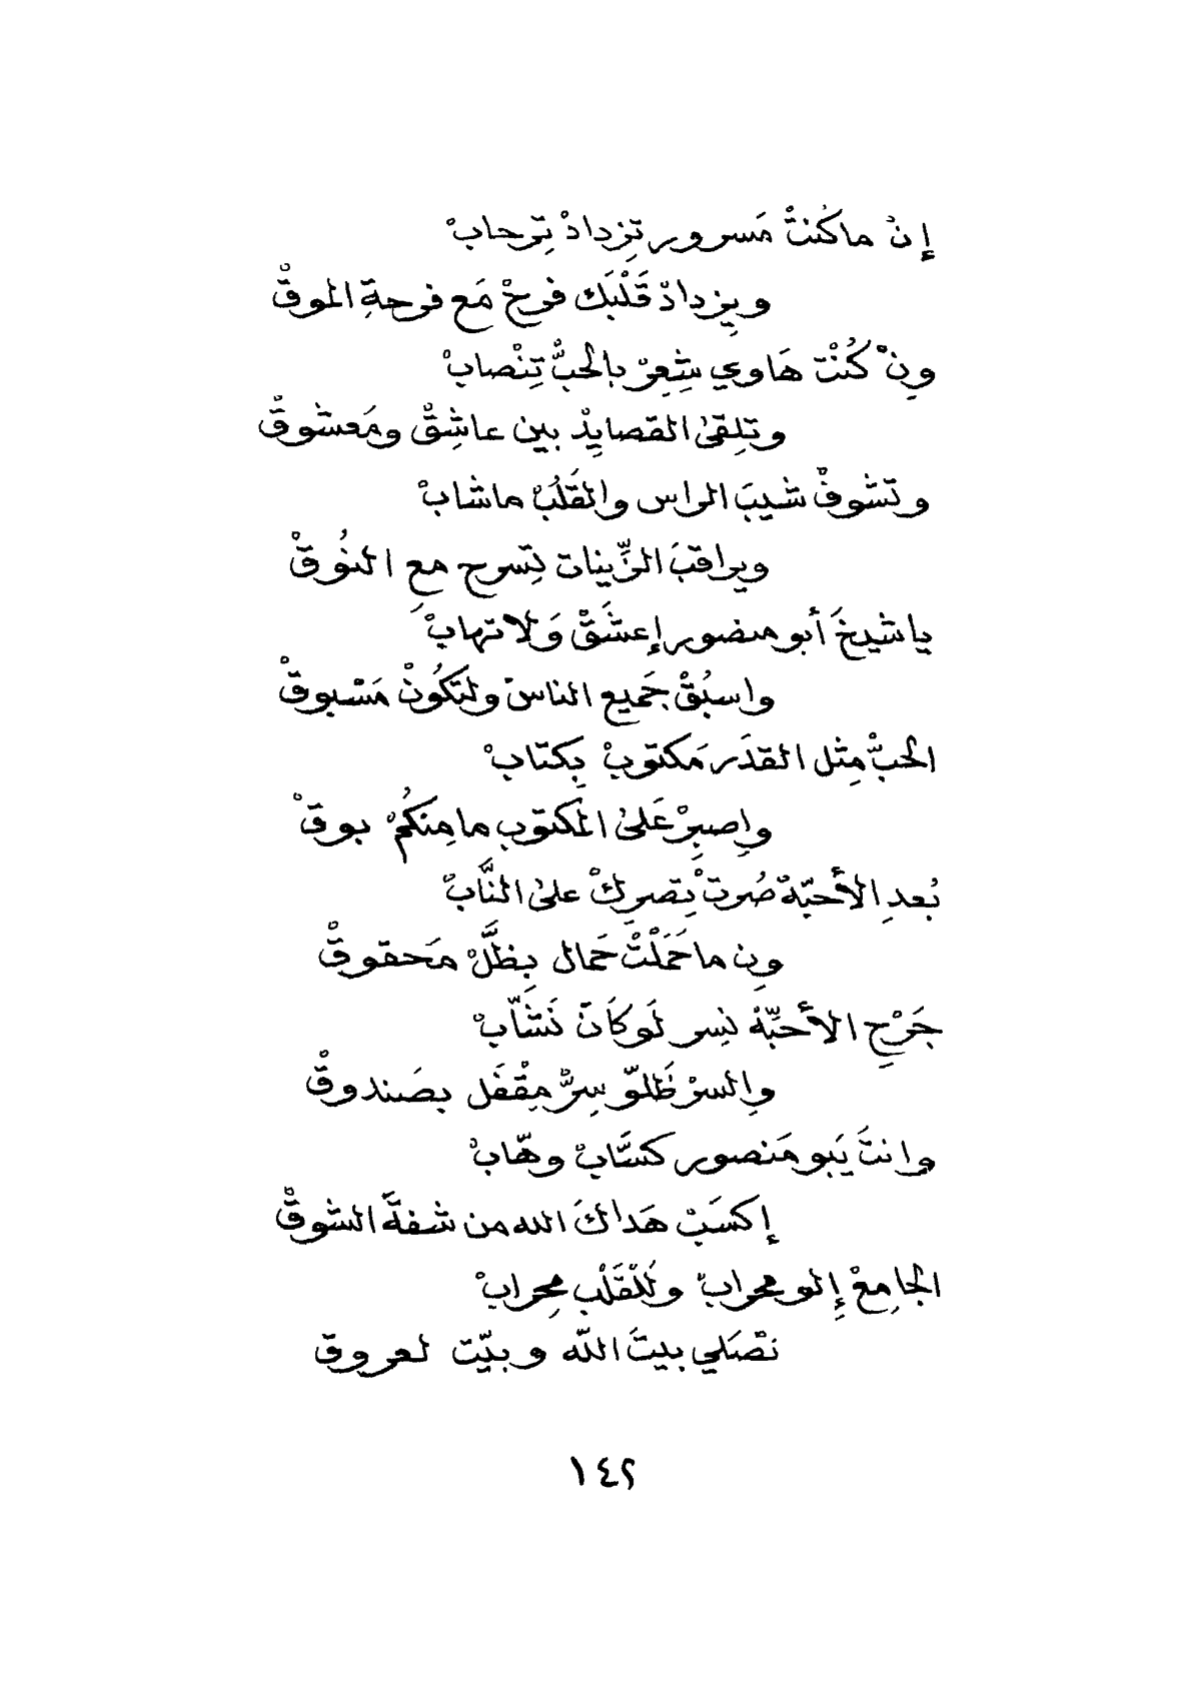 إنْ ماكُنتْ مَسرور تِزدادْ تِرحابْ
ويِزدادْ قَلْبَك فرحْ مَع فرحةِ الموقْ
ونِْ كُنْت هَاوي شِعِرْ بالحبّْ تِنْصابْ
وتلِقىٰ القصايِدْ بين عاشِقْ ومَعشوقْ
وتشوفْ شيبَ الراس والقَلُبْ ماشابْ
ويراقبَ الزِّينات تِسرح معِ النُوقْ
ياشيخَ أبو منصور إعشَقْ وَلاتهابْ
واسبُقْ جَميع الناسْ ولتكُونْ مَسْبوقْ
الحبّْ مِثل القدَر مَكتوبْ بِكتابْ
واِصبِرْ عَلىٰ المكتوبِ مامِنكُمْ بوقْ
بُعدِ الأحبّةْ صُرتْ بِتصرِكْ علىٰ النَّابْ
ونِ ماحَمَلْتْ حَمال بِظلَّْ مَحقوقْ
جَرْحِ الأحبِّةْ نسِر لَوكَانْ نَشَّابْ
واِلسرْ ظَلوّ سِرّْ مِقْفَل بصَندوقْ
وانتَ يَبو مَنصور كسَّابْ وهّابْ
إكسَبْ هَداكَ الله من شفةَ الشوقْ
الجامِعْ إِلو محرابْ ولُلْقَلْب مِحرابْ
نصْلي ببيتَ اللّه وبيّت لعروق
١٤٢